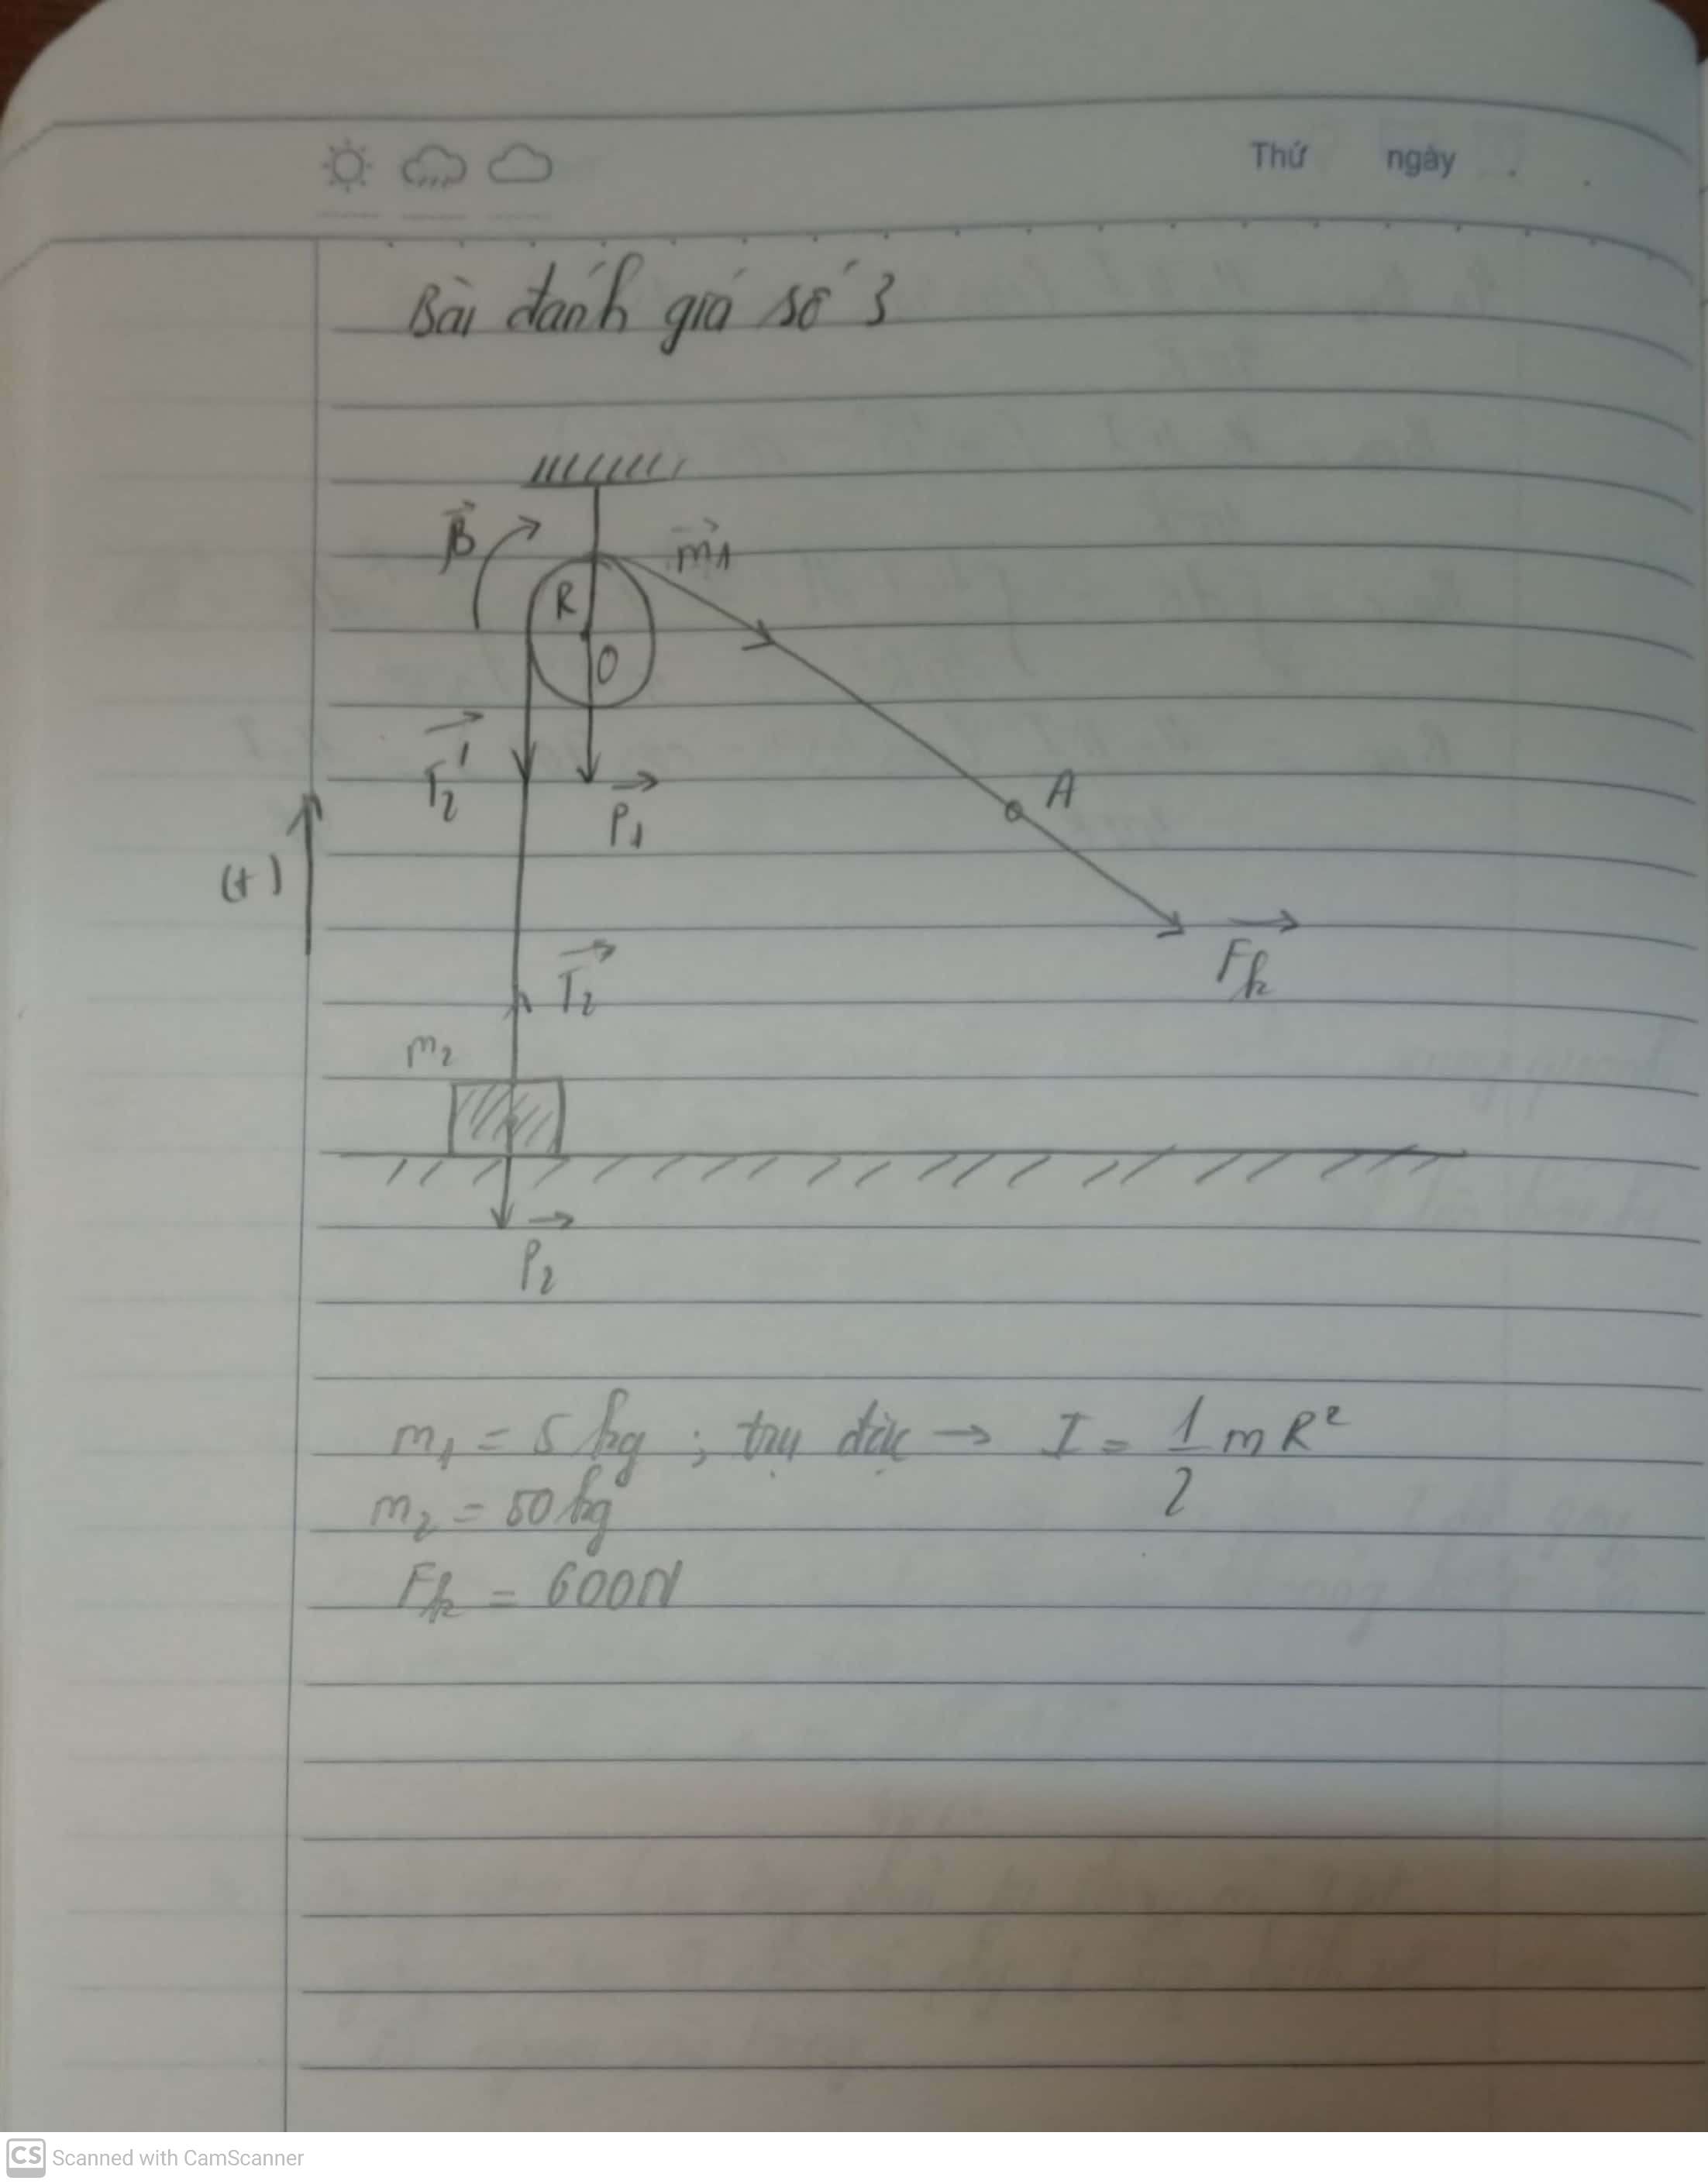 Thứ ngày . .
Bài đánh giá số 3
β
m1
R
O
T2'
P1
A
(+)
Fk
T2
m2
P2
m1 = 5 kg ; trụ đặc → I = 1/2 mR²
m2 = 50 kg
Fk = 600N
CS Scanned with CamScanner